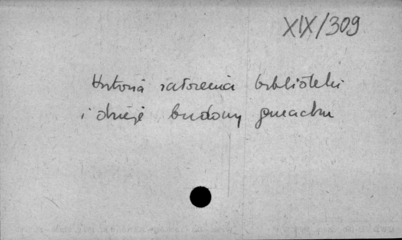 XIX/309
Historia założenia biblioteki
i dzieje budowy gmachu